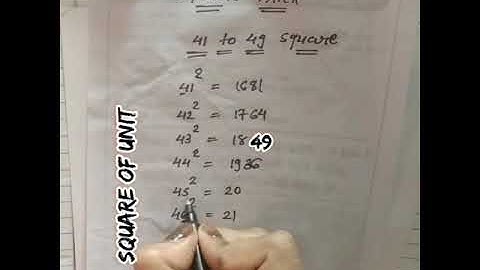 41 to 49 square
41² = 1681
42² = 1764
43² = 1849
44² = 1936
45² = 20
46² = 21
SQUARE OF UNIT